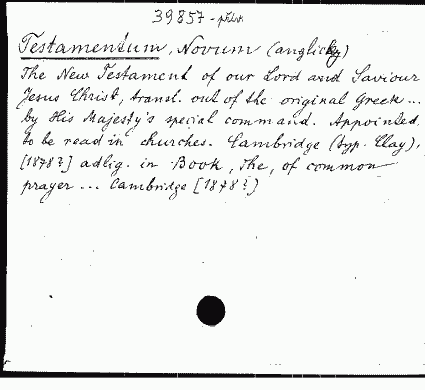 39857-přívk
Testamentum, Novum (anglicky)
The New Testament of our Lord and Saviour
Jesus Christ, transl. out of the original Greek ...
by His Majesty's special command. Appointed
to be read in churches. Cambridge (typ. Clay),
[1878?] adlig. in Book, The, of common
prayer ... Cambridge [1878?]